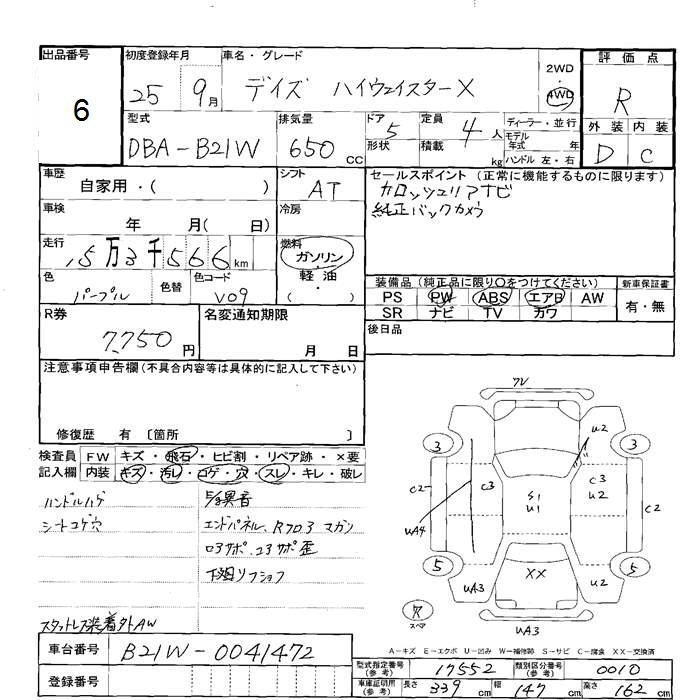 出品番号
6
初度登録年月
25 9月
車名・グレード
デイズ ハイウェイスターX
2WD
・
4WD
評価点
R
外装 内装
D C
型式
DBA-B21W
排気量
650cc
ドア 5
形状
定員 4人
積載 kg
ディーラー・並行
モデル
年式 年
ハンドル 左・右
車歴
自家用・( )
シフト
AT
セールスポイント(正常に機能するものに限ります)
カロッツェリアナビ
純正バックカメラ
車検
年 月( 日)
冷房
走行
15万3千566km
燃料
ガソリン
・
軽油
・
( )
色
パープル
色替
色コード
V09
装備品(純正品に限り○をつけてください)
PS PW ABS エアB AW
SR ナビ TV カワ
新車保証書
有・無
R券
7,750円
名変通知期限
月 日
後日品
注意事項申告欄(不具合内容等は具体的に記入して下さい)
修復歴 有 〔箇所 〕
検査員 FW キズ・飛石・ヒビ割・リペア跡・×要
記入欄 内装 キズ・汚レ・コゲ・穴・スレ・キレ・破レ
ハンドルハゲ
シートコゲ穴
異音
エンドパネル、Rフロ
サポ歪
スタットレス装着外AW
車台番号
B21W-0041472
登録番号
3 3
U2
C2 C3 C3
U2
S1
U1
C2
UA4
5 5
XX
UA3 U2
穴
スペア
UA3
A-キズ E-エクボ U-凹み W-補修跡 S-サビ C-腐食 XX-交換済
型式指定番号
(参考)
17552
類別区分番号
(参考)
0010
車庫証明用
(参考)
長さ 339cm 幅 147cm 高さ 162cm